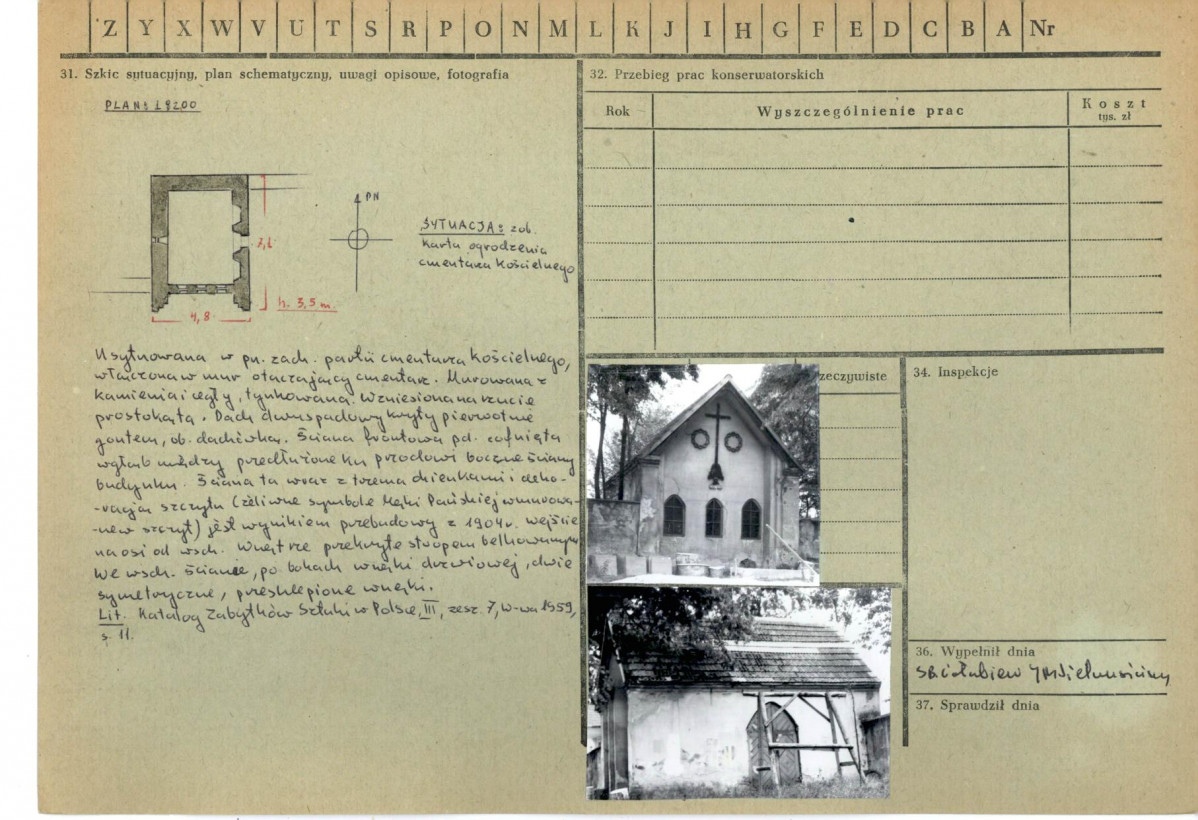 Z Y X W V U T S R P O N M L K J I H G F E D C B A Nr
31. Szkic sytuacyjny, plan schematyczny, uwagi opisowe, fotografia
PLAN 1:200
PN
SYTUACJA: zob.
karta ogrodzenia
cmentarza kościelnego
7,1
h. 3,5 m.
4,8
Usytuowana w pn. zach. partii cmentarza kościelnego,
włączona w mur otaczający cmentarz. Murowana z
kamienia i cegły, tynkowana. Wzniesiona na rzucie
prostokąta. Dach dwuspadowy kryty pierwotnie
gontem, ob. dachówką. Ściana frontowa pd. cofnięta
w głąb między przedłużone ku przodowi boczne ściany
budynku. Ściana ta wraz z trzema okienkami i deko-
-racją szczytu (żeliwne symbole Męki Pańskiej wmurowa-
-ne w szczyt) jest wynikiem przebudowy z 1904 r. Wejście
na osi od wsch. Wnętrze przekryte stropem belkowanym
We wsch. ścianie, po bokach wnęki drzwiowej, dwie
symetryczne, przesklepione wnęki.
Lit. Katalog Zabytków Sztuki w Polsce, III, zesz. 7, W-wa 1959,
s. 11.
32. Przebieg prac konserwatorskich
Rok Wyszczególnienie prac Koszt
tys. zł
zeczywiste
34. Inspekcje
36. Wypełnił dnia
37. Sprawdził dnia